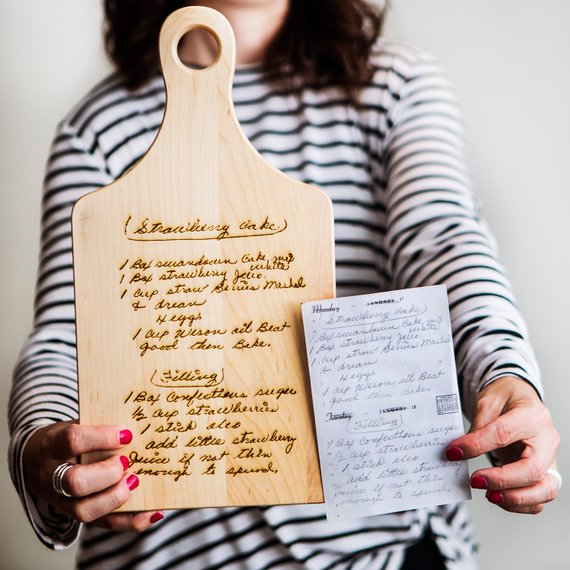 (Strawberry Cake)
1 Box swandown Cake mix
white
1 Box strawberry Jello.
1 Cup straw Berries Mashed
& drean
4 eggs
1 Cup Wesson oil Beat
good then Bake.
(Filling)
1 Box Confections suger
1/2 Cup strawberries
1 stick oleo
add little strawberry
Juice if not thin
enough to spread.
Monday JANUARY 17
Strawberry Cake
1 Box swandown Cake mix
white
1 Box strawberry Jello.
1 Cup straw Berries Mashed
& drean
4 eggs
1 Cup Wesson oil Beat
good then Bake.
Tuesday JANUARY 18
(Filling)
1 Box Confections suger
1/2 Cup strawberries
1 stick oleo
add little strawberry
Juice if not thin
enough to spread.